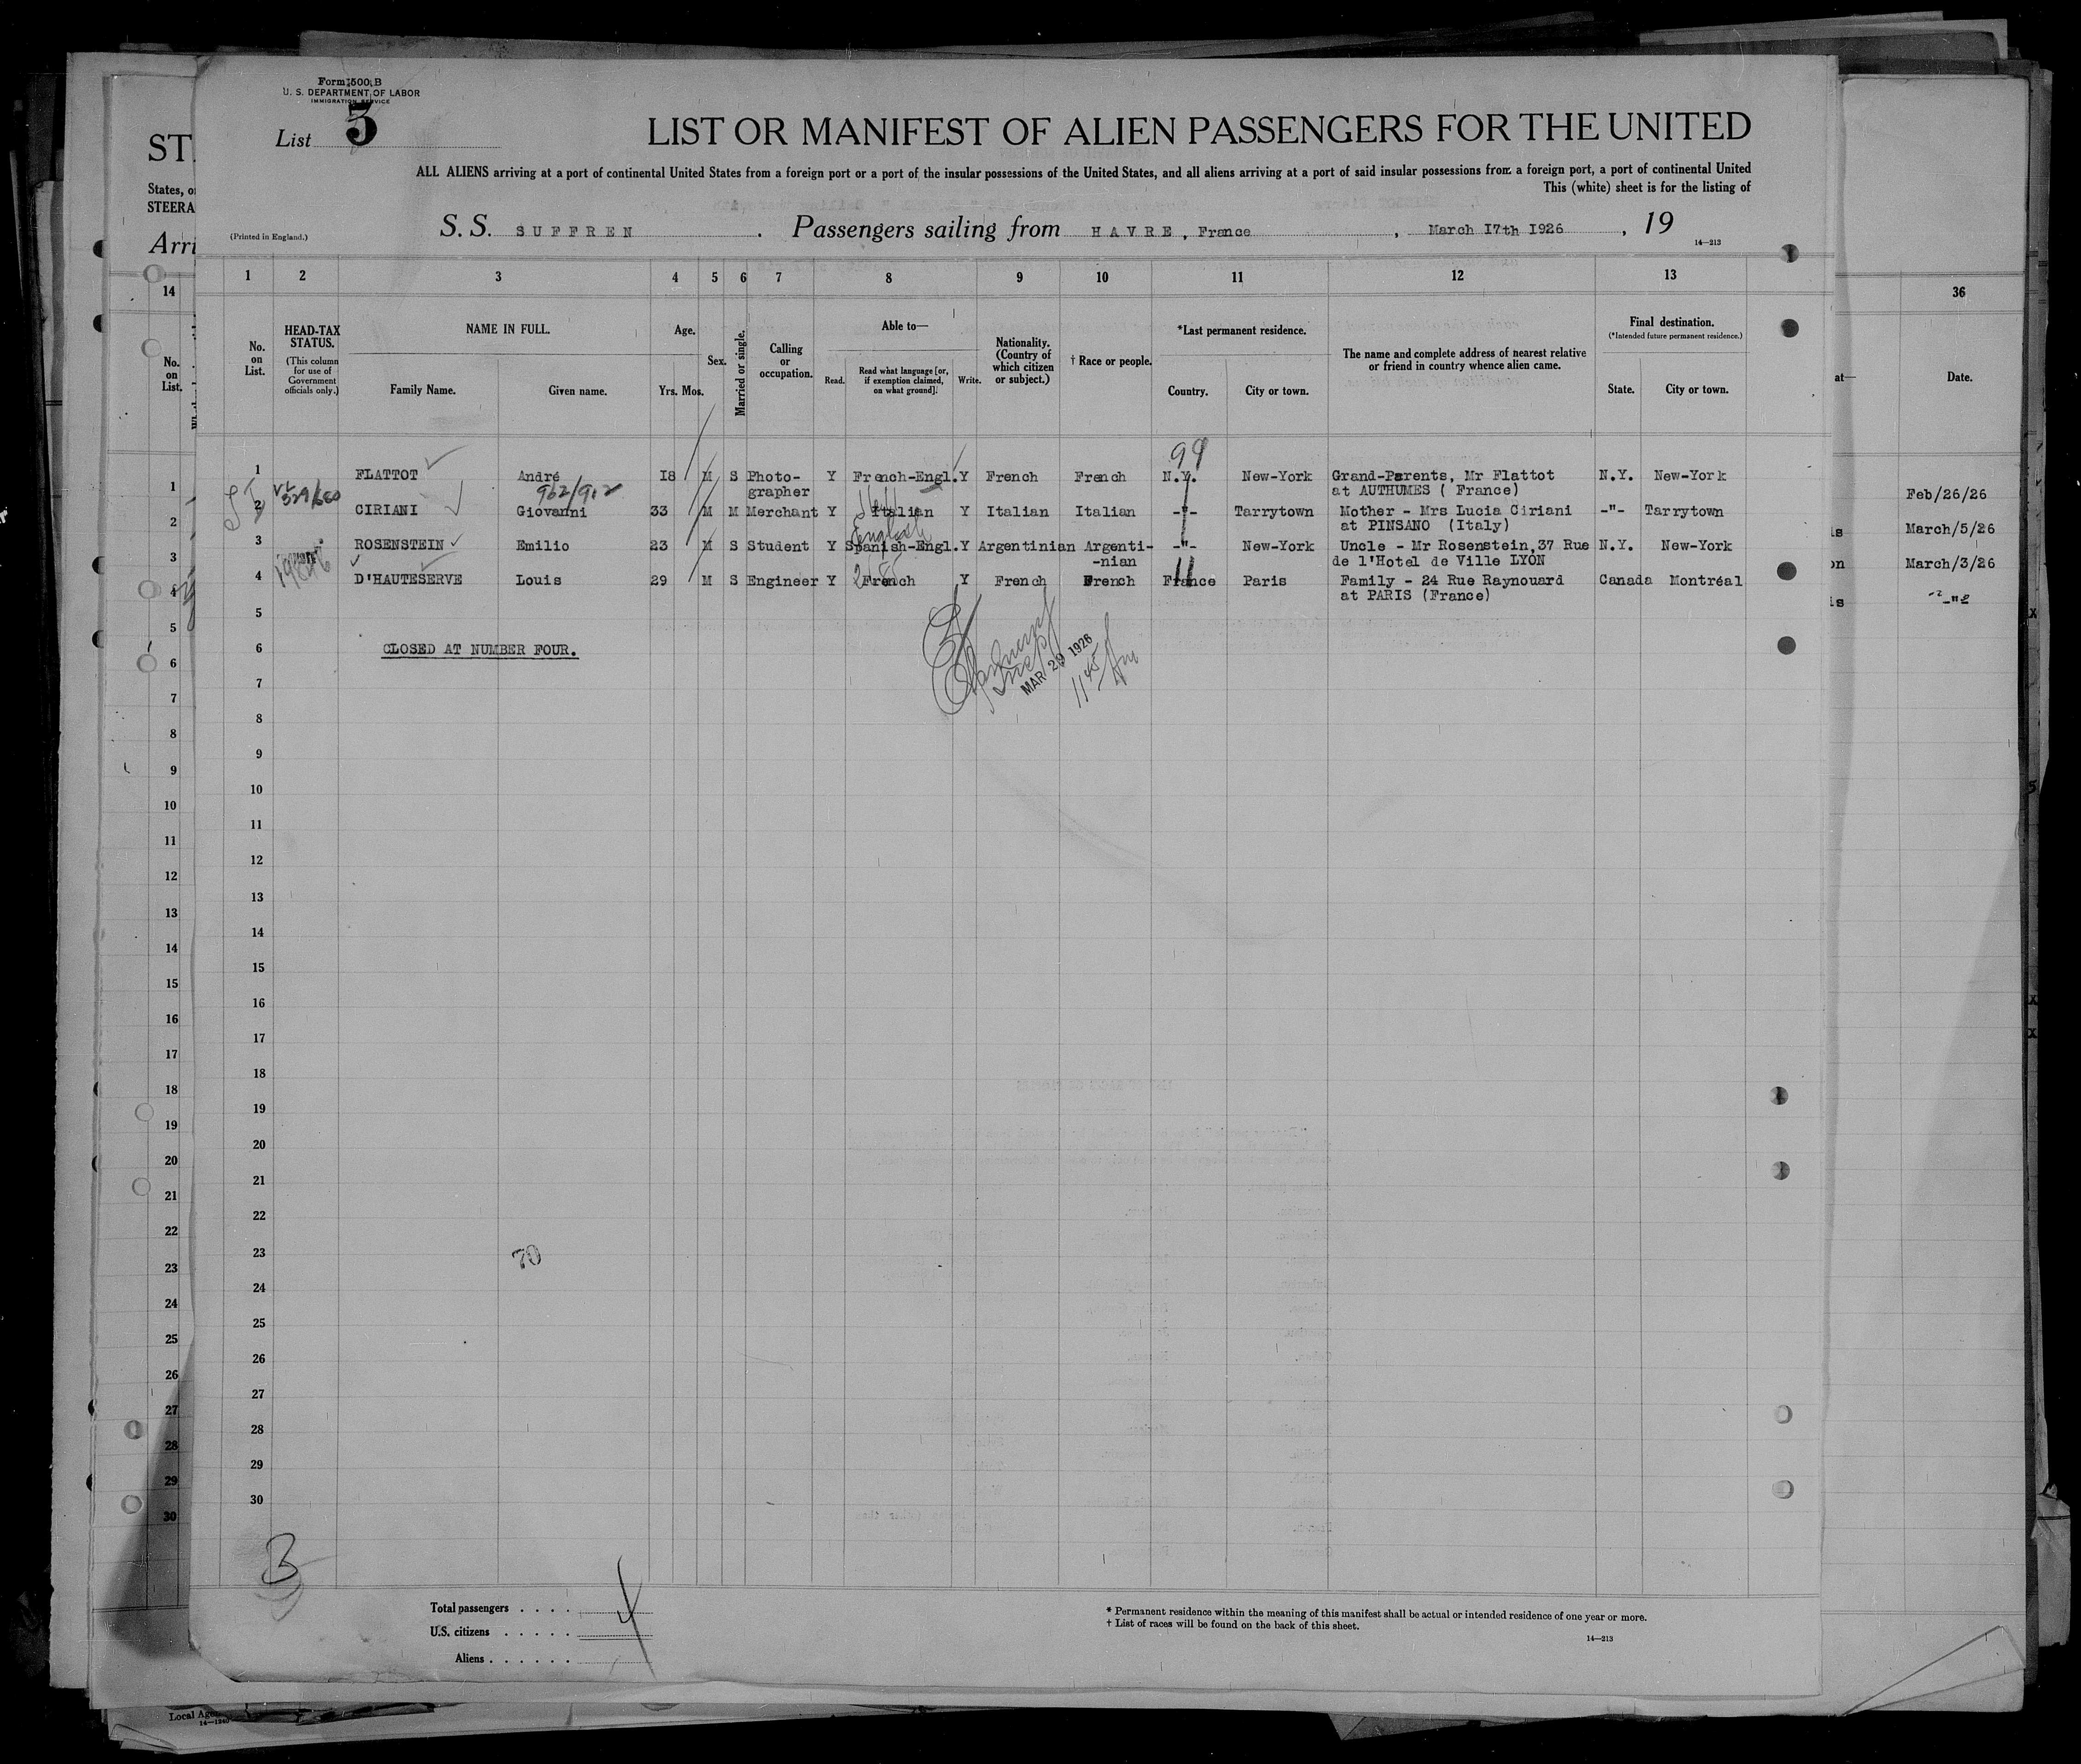 Form 500 B
U. S. DEPARTMENT OF LABOR
IMMIGRATION SERVICE
List 3
LIST OR MANIFEST OF ALIEN PASSENGERS FOR THE UNITED
ALL ALIENS arriving at a port of continental United States from a foreign port or a port of the insular possessions of the United States, and all aliens arriving at a port of said insular possessions from a foreign port, a port of continental United
This (white) sheet is for the listing of
(Printed in England.)
S. S. SUFFREN . Passengers sailing from HAVRE, France , March I7th I926 , 19
14—213
ST
States, o
STEERA
Arri
1 2 3 4 5 6 7 8 9 10 11 12 13
14 36
No. on List.
HEAD-TAX STATUS.
(This column for use of Government officials only.)
NAME IN FULL.
Family Name. Given name.
Age.
Yrs. Mos.
Sex.
Married or single.
Calling or occupation.
Able to—
Read. Read what language [or, if exemption claimed, on what ground]. Write.
Nationality. (Country of which citizen or subject.)
† Race or people.
*Last permanent residence.
Country. City or town.
The name and complete address of nearest relative or friend in country whence alien came.
Final destination.
(*Intended future permanent residence.)
State. City or town.
No. on List.
at— Date.
99
1 FLATTOT André I8 M S Photo- Y French-Engl. Y French French N.Y. New-York Grand-Parents, Mr Flattot N.Y. New-York
grapher at AUTHUMES ( France)
962/912
2 CIRIANI Giovanni 33 M M Merchant Y Italian Y Italian Italian -"- Tarrytown Mother - Mrs Lucia Ciriani -"- Tarrytown
at PINSANO (Italy)
English
3 ROSENSTEIN Emilio 23 M S Student Y Spanish-Engl. Y Argentinian Argenti- -"- New-York Uncle - Mr Rosenstein,37 Rue N.Y. New-York
-nian de l'Hotel de Ville LYON
4 D'HAUTESERVE Louis 29 M S Engineer Y French Y French French France Paris Family - 24 Rue Raynouard Canada Montréal
at PARIS (France)
Feb/26/26
is March/5/26
on March/3/26
is -"-
5
6 CLOSED AT NUMBER FOUR.
MAR 29 1926
1145 Am
7
8
9
10
11
12
13
14
15
16
17
18
19
20
21
22
23
70
24
25
26
27
28
29
30
1
2
3
4
5
6
7
8
9
10
11
12
13
14
15
16
17
18
19
20
21
22
23
24
25
26
27
28
29
30
3
Total passengers . . . . 4
U.S. citizens . . . . .
Aliens . . . . . .
* Permanent residence within the meaning of this manifest shall be actual or intended residence of one year or more.
† List of races will be found on the back of this sheet.
14—213
Local Age
14—1240